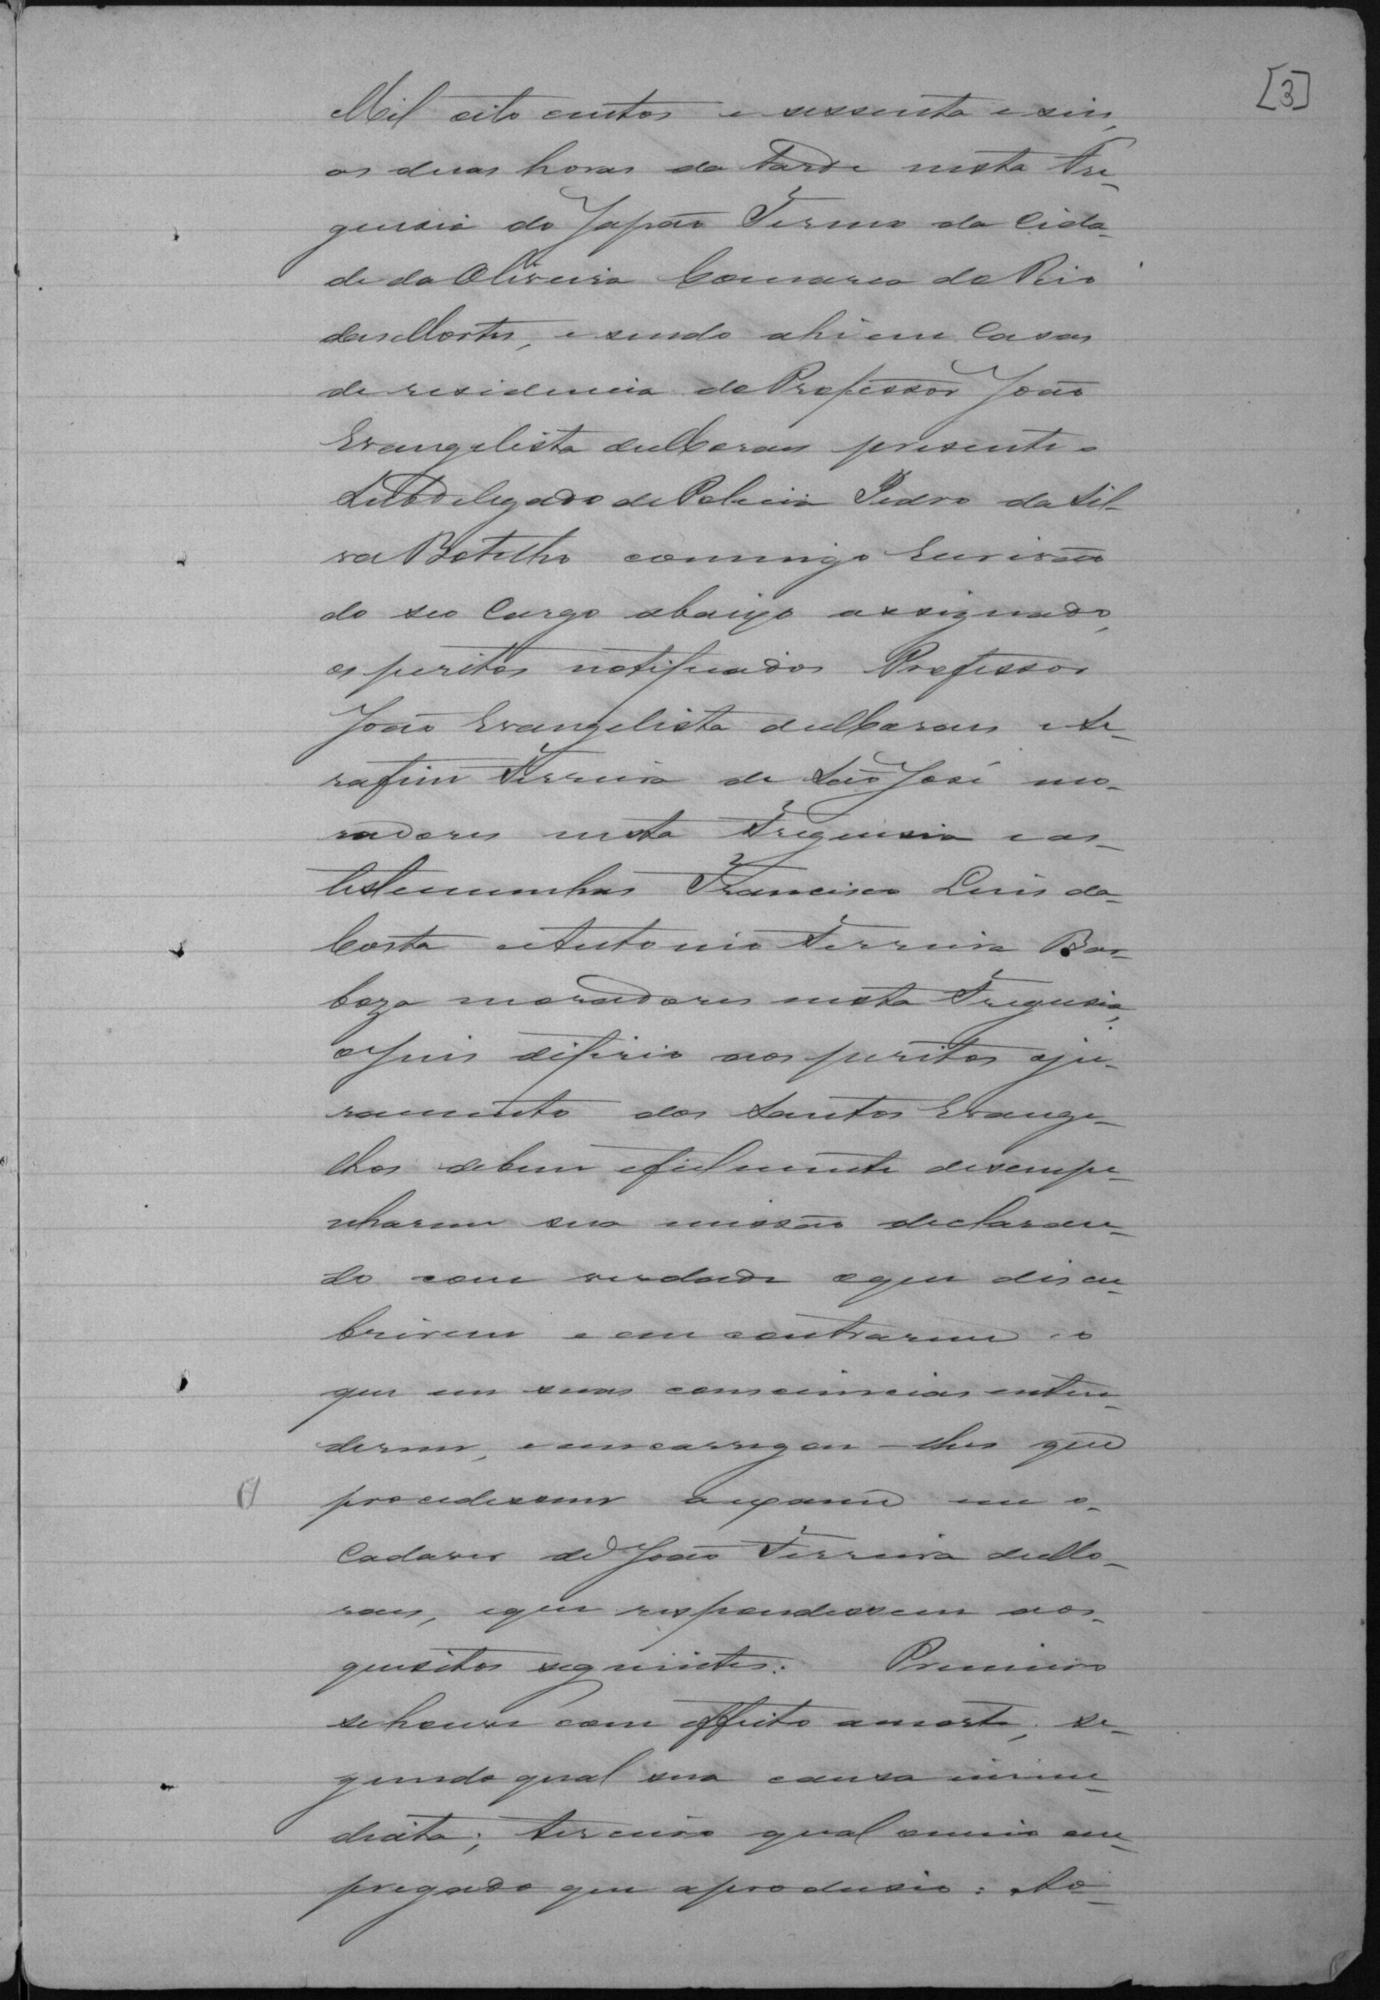 [3]
Mil oito centos e sessenta e sin,
as duas horas da tarde nesta Fre-
guesia do Japão Termo da Cida-
de da Oliveira Comarca do Rio
das Mortes, e sendo ahi em Casas
de residencia do Professor João
Evangelista de Moraes presente o
Subdelegado de Policia Pedro da Sil-
va Botelho commigo Escrivão
do seo Cargo abaixo assignado,
os peritos notificados Professor
João Evangelista de Moraes e Se-
rafim Ferreira de São José mo-
radores nesta Freguesia e as-
testemunhas Francisco Luis da-
Costa e Antonio Ferreira Bar-
boza moradores nesta Freguesia,
o Juis difirio aos peritos o ju-
ramento dos Santos Evange-
lhos de bem e fielmente desempe-
nharem sua missão declaran-
do com verdade o que discu-
brirem e em contrarem e o
que em suas consciencias enten-
derem, e emcarregou-lhes que
procedessem a exame em o-
Cadaver de João Ferreira de Mo-
raes, e que respondessem aos-
quesitos seguintes: Primeiro
se houve com effeito a morte; se-
gundo qual sua causa imme-
diata; terceiro qual o meio em-
pregado que a produsio: Ao-